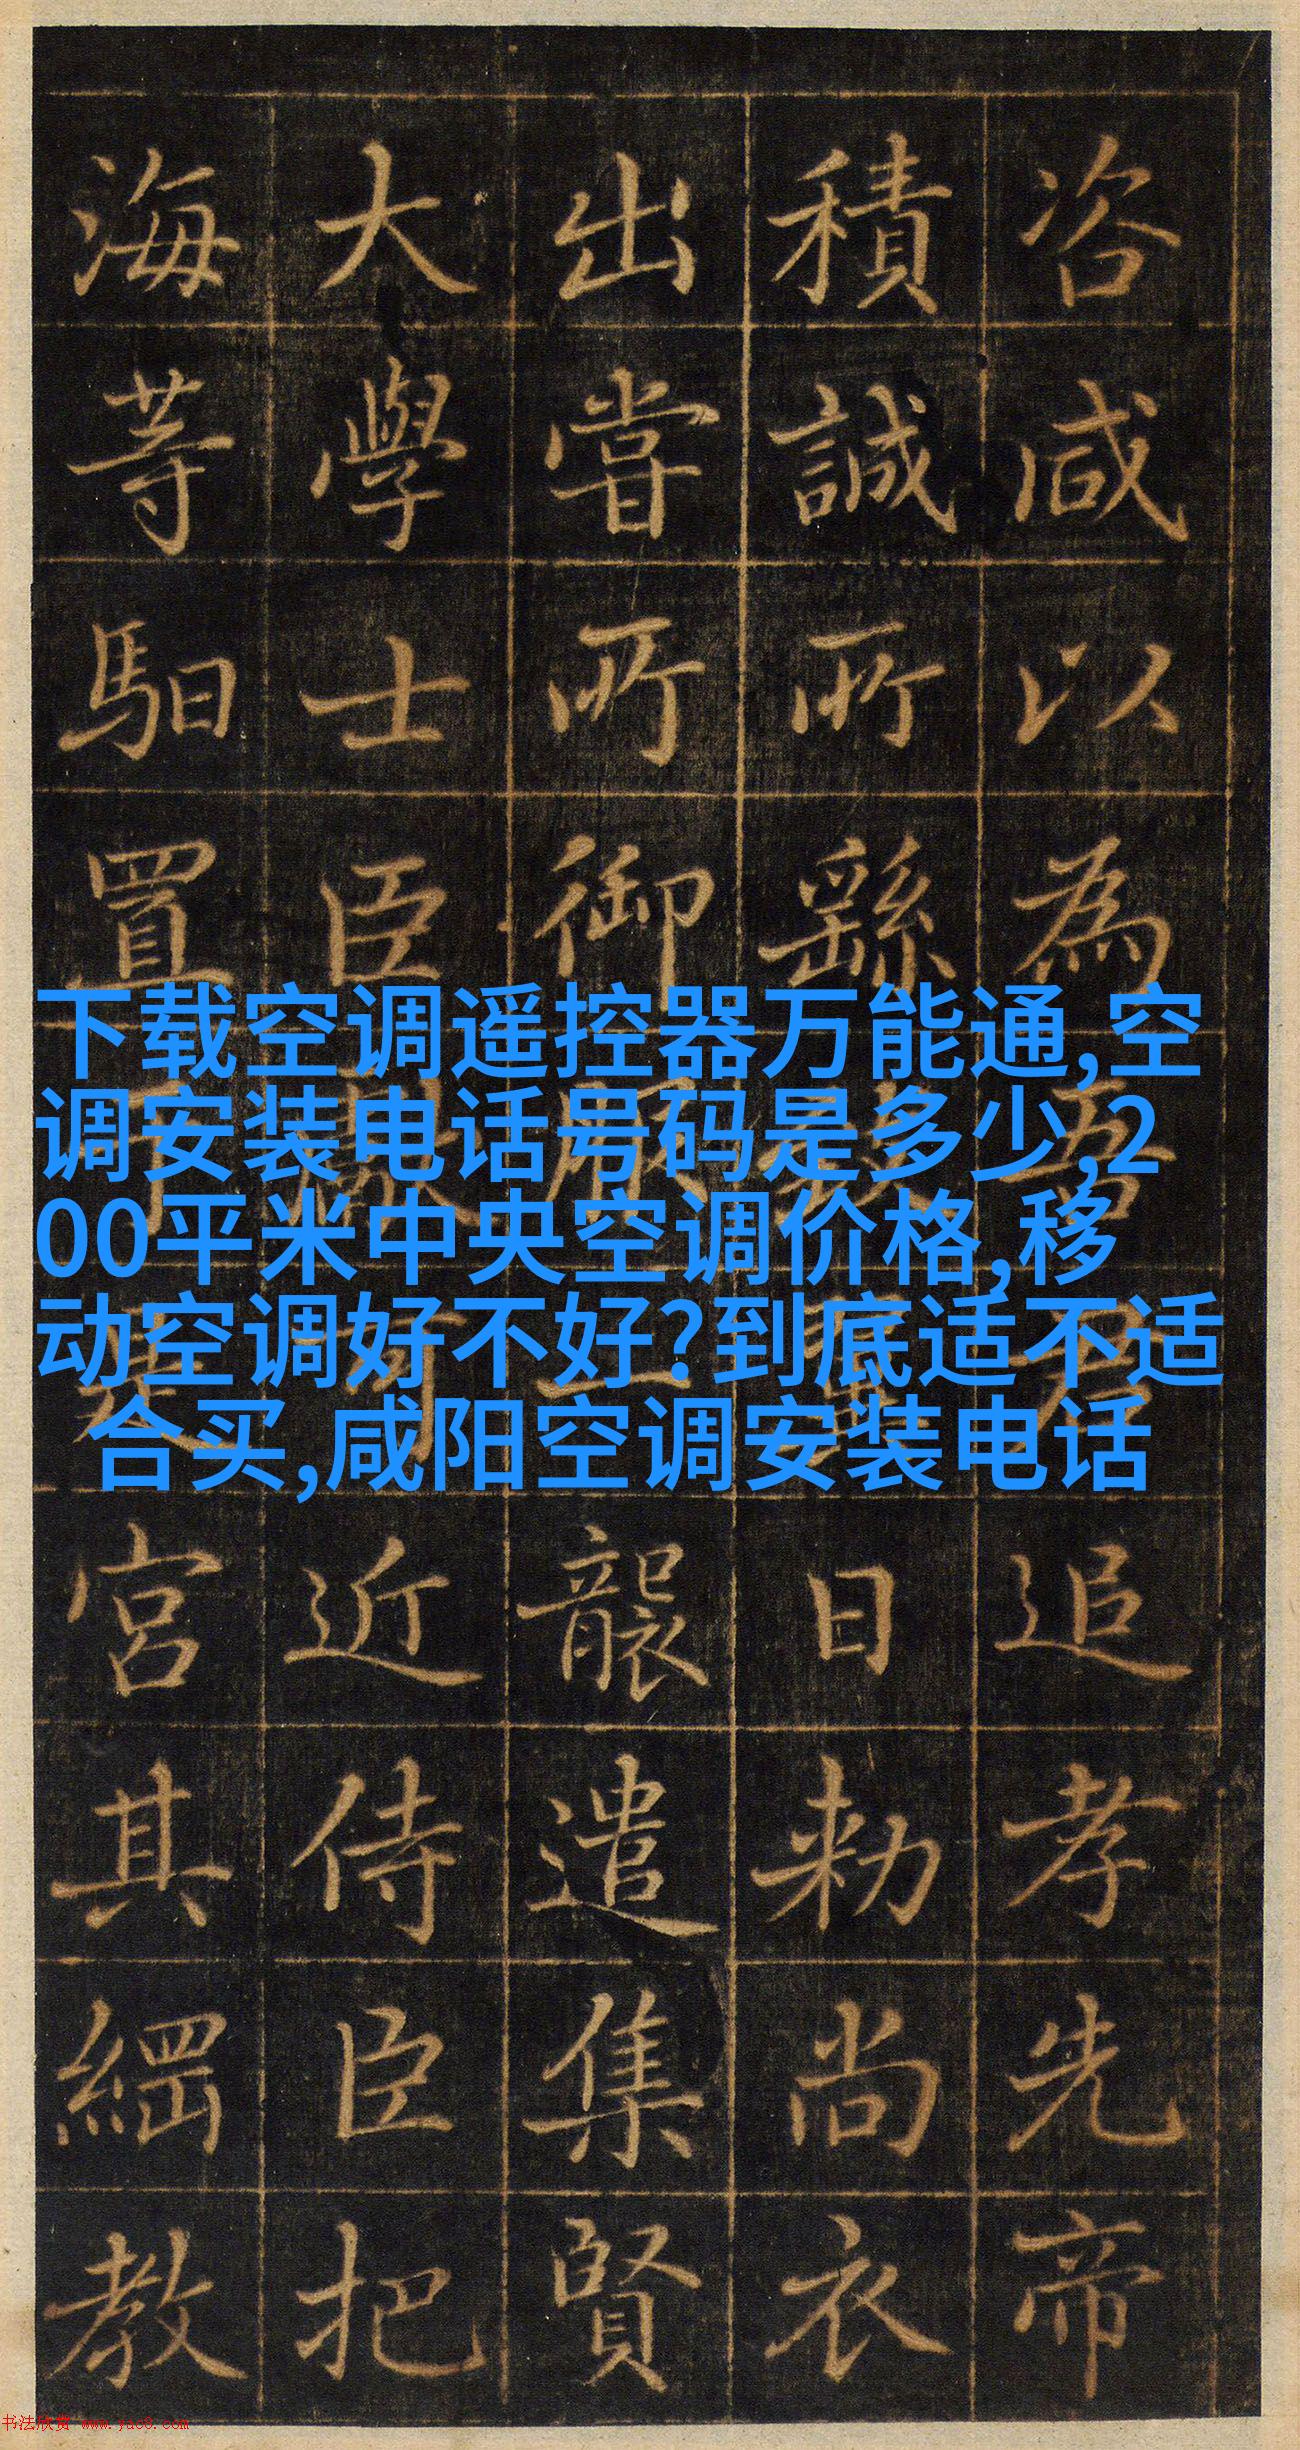 咨咸以為吾君追孝先帝
積誠所繇日勑尚衣
出嘗所御服一襲遣集賢
大學士臣近侍臣把
海等馹置宮其綱教
下载空调遥控器万能通,空
调安装电话号码是多少,2
00平米中央空调价格,移
动空调好不好?到底适不适
合买,咸阳空调安装电话
书法欣赏 www.yac8.com